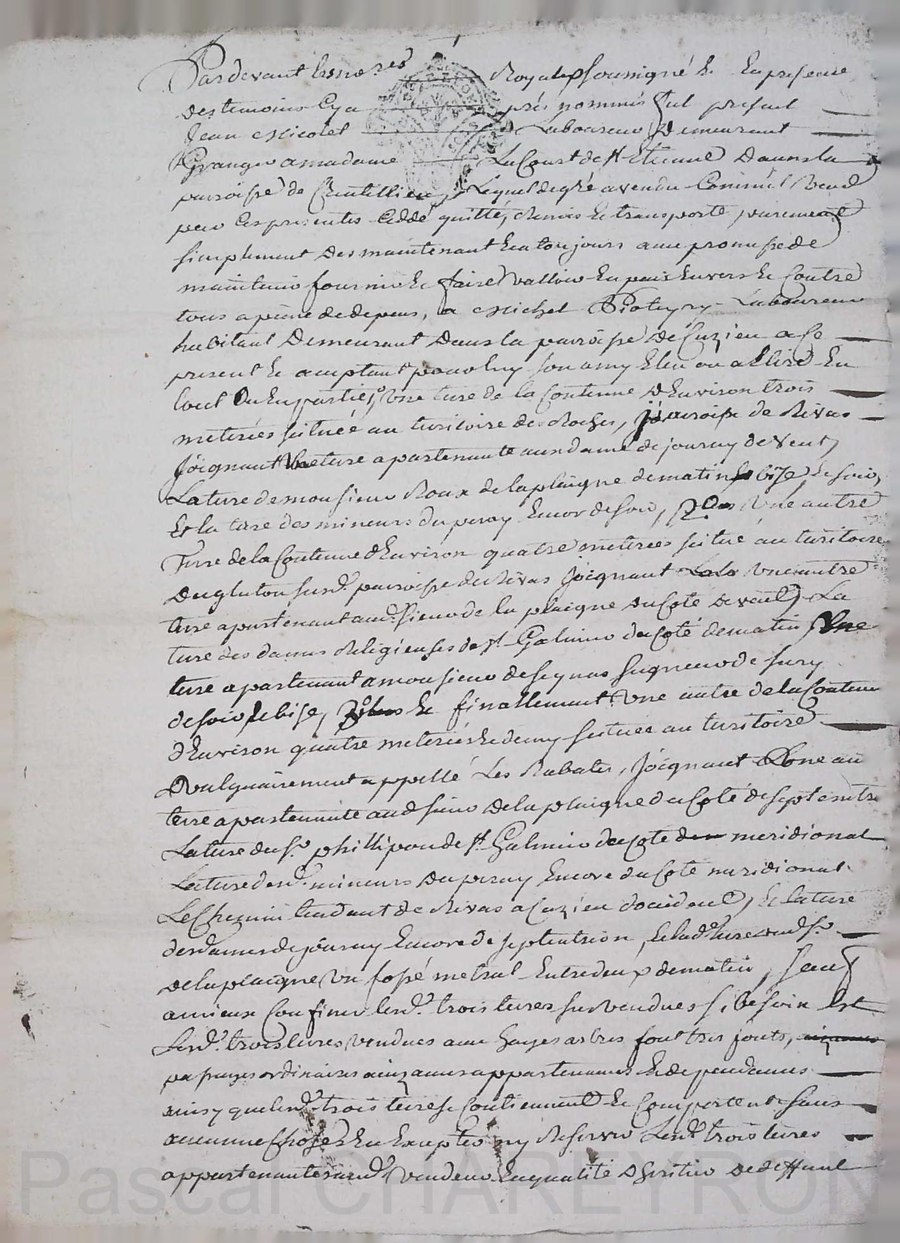 Pardevant le no.re Royal soussigné & En presence
des temoins cy a prés nommés fut present
Jean Nicolet Laboureur Demeurant
Granger a madame La Court de st Etienne Dans la
paroisse de Lequel de gré a vendu Comme il Vend
par Ces presentes Cedde quitte, demis & transporte purement
simplement Des maintenant & a toujours avec promesse de
maintenir fournir & faire Valloir En paix Envers & Contre
tous a peine de depens, a Michel Laboureur
habitant Demeurant Dans la paroisse De Cuzieu a ce
present & acceptant pour luy son amy Eleu ou a Elire En
tout Ou En partie, 1° une terre de la Contenue D'Environ trois
meterées scituée au territoire des Roches, paroisse de Rivas
Joignant La terre apartenante aux dames de Journy de Vent,
La terre de monsieur Roux de la plaigne de matin & bize, de soir,
Et la terre des mineurs Duperay Encor de soir, 2° Une autre
Terre de la Contenue d'Environ quatre meterées scitué au territoire
Dugluton susd. paroisse de Rivas Joignant Une autre
terre apartenant aud. sieur de la plaigne Du Coté de vent, La
terre des dames Religieuses de st Galmier du Coté de matin, Une
terre apartenant a monsieur de seigneur de sury
de soir & bize, & finallement Une autre de la Contenue
d'Environ quatre meterées & demy scituée au territoire
Vulguairement appellé Les Rabates, Joignant Une au
terre apartenante aud sieur De la plaigne du Coté de septentrion
La terre du sr. phillipon de st Galmier du Coté meridional
La terre desd. mineurs Duperay Encore du Coté meridional
Le Chemin tendant de Rivas a Cuzieu d'occident, & la terre
desd dames de Journy Encore de septentrion, & lad. terre dud. sr.
De la plaigne Un fossé metral Entredeux de matin, sauf
a mieux Confiner lesd. trois terres survendues si besoin Est
Lesd. trois terres Vendues avec hayes arbres
passages ordinaires aizances appartenances & dependances
ainsy que lesd. trois terres se Contiennent & Comportent sans
aucune Choses En Excepter ny Reserver Lesd. trois terres
appartenantes aud. Vendeur En qualité D'heritier De deffunt
Pascal CHAREYRON